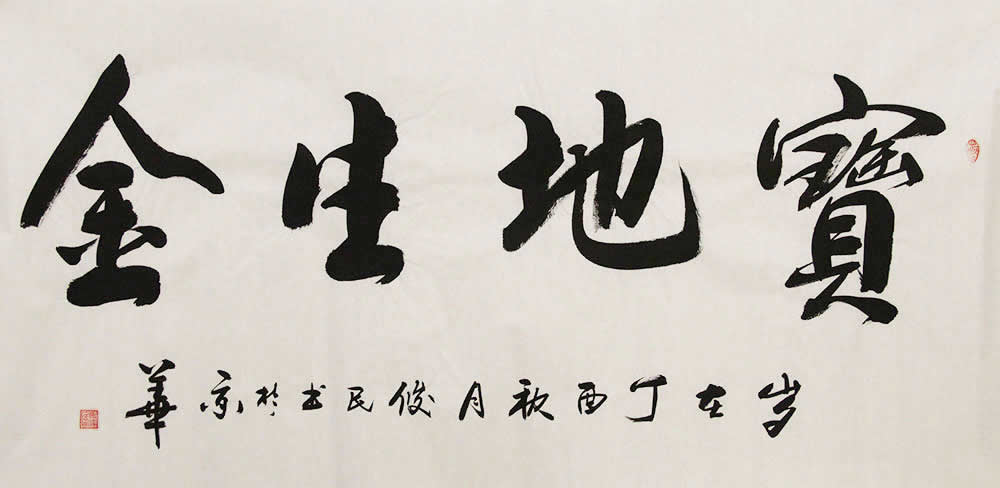 寳地生金
岁在丁酉秋月俊民书於京華